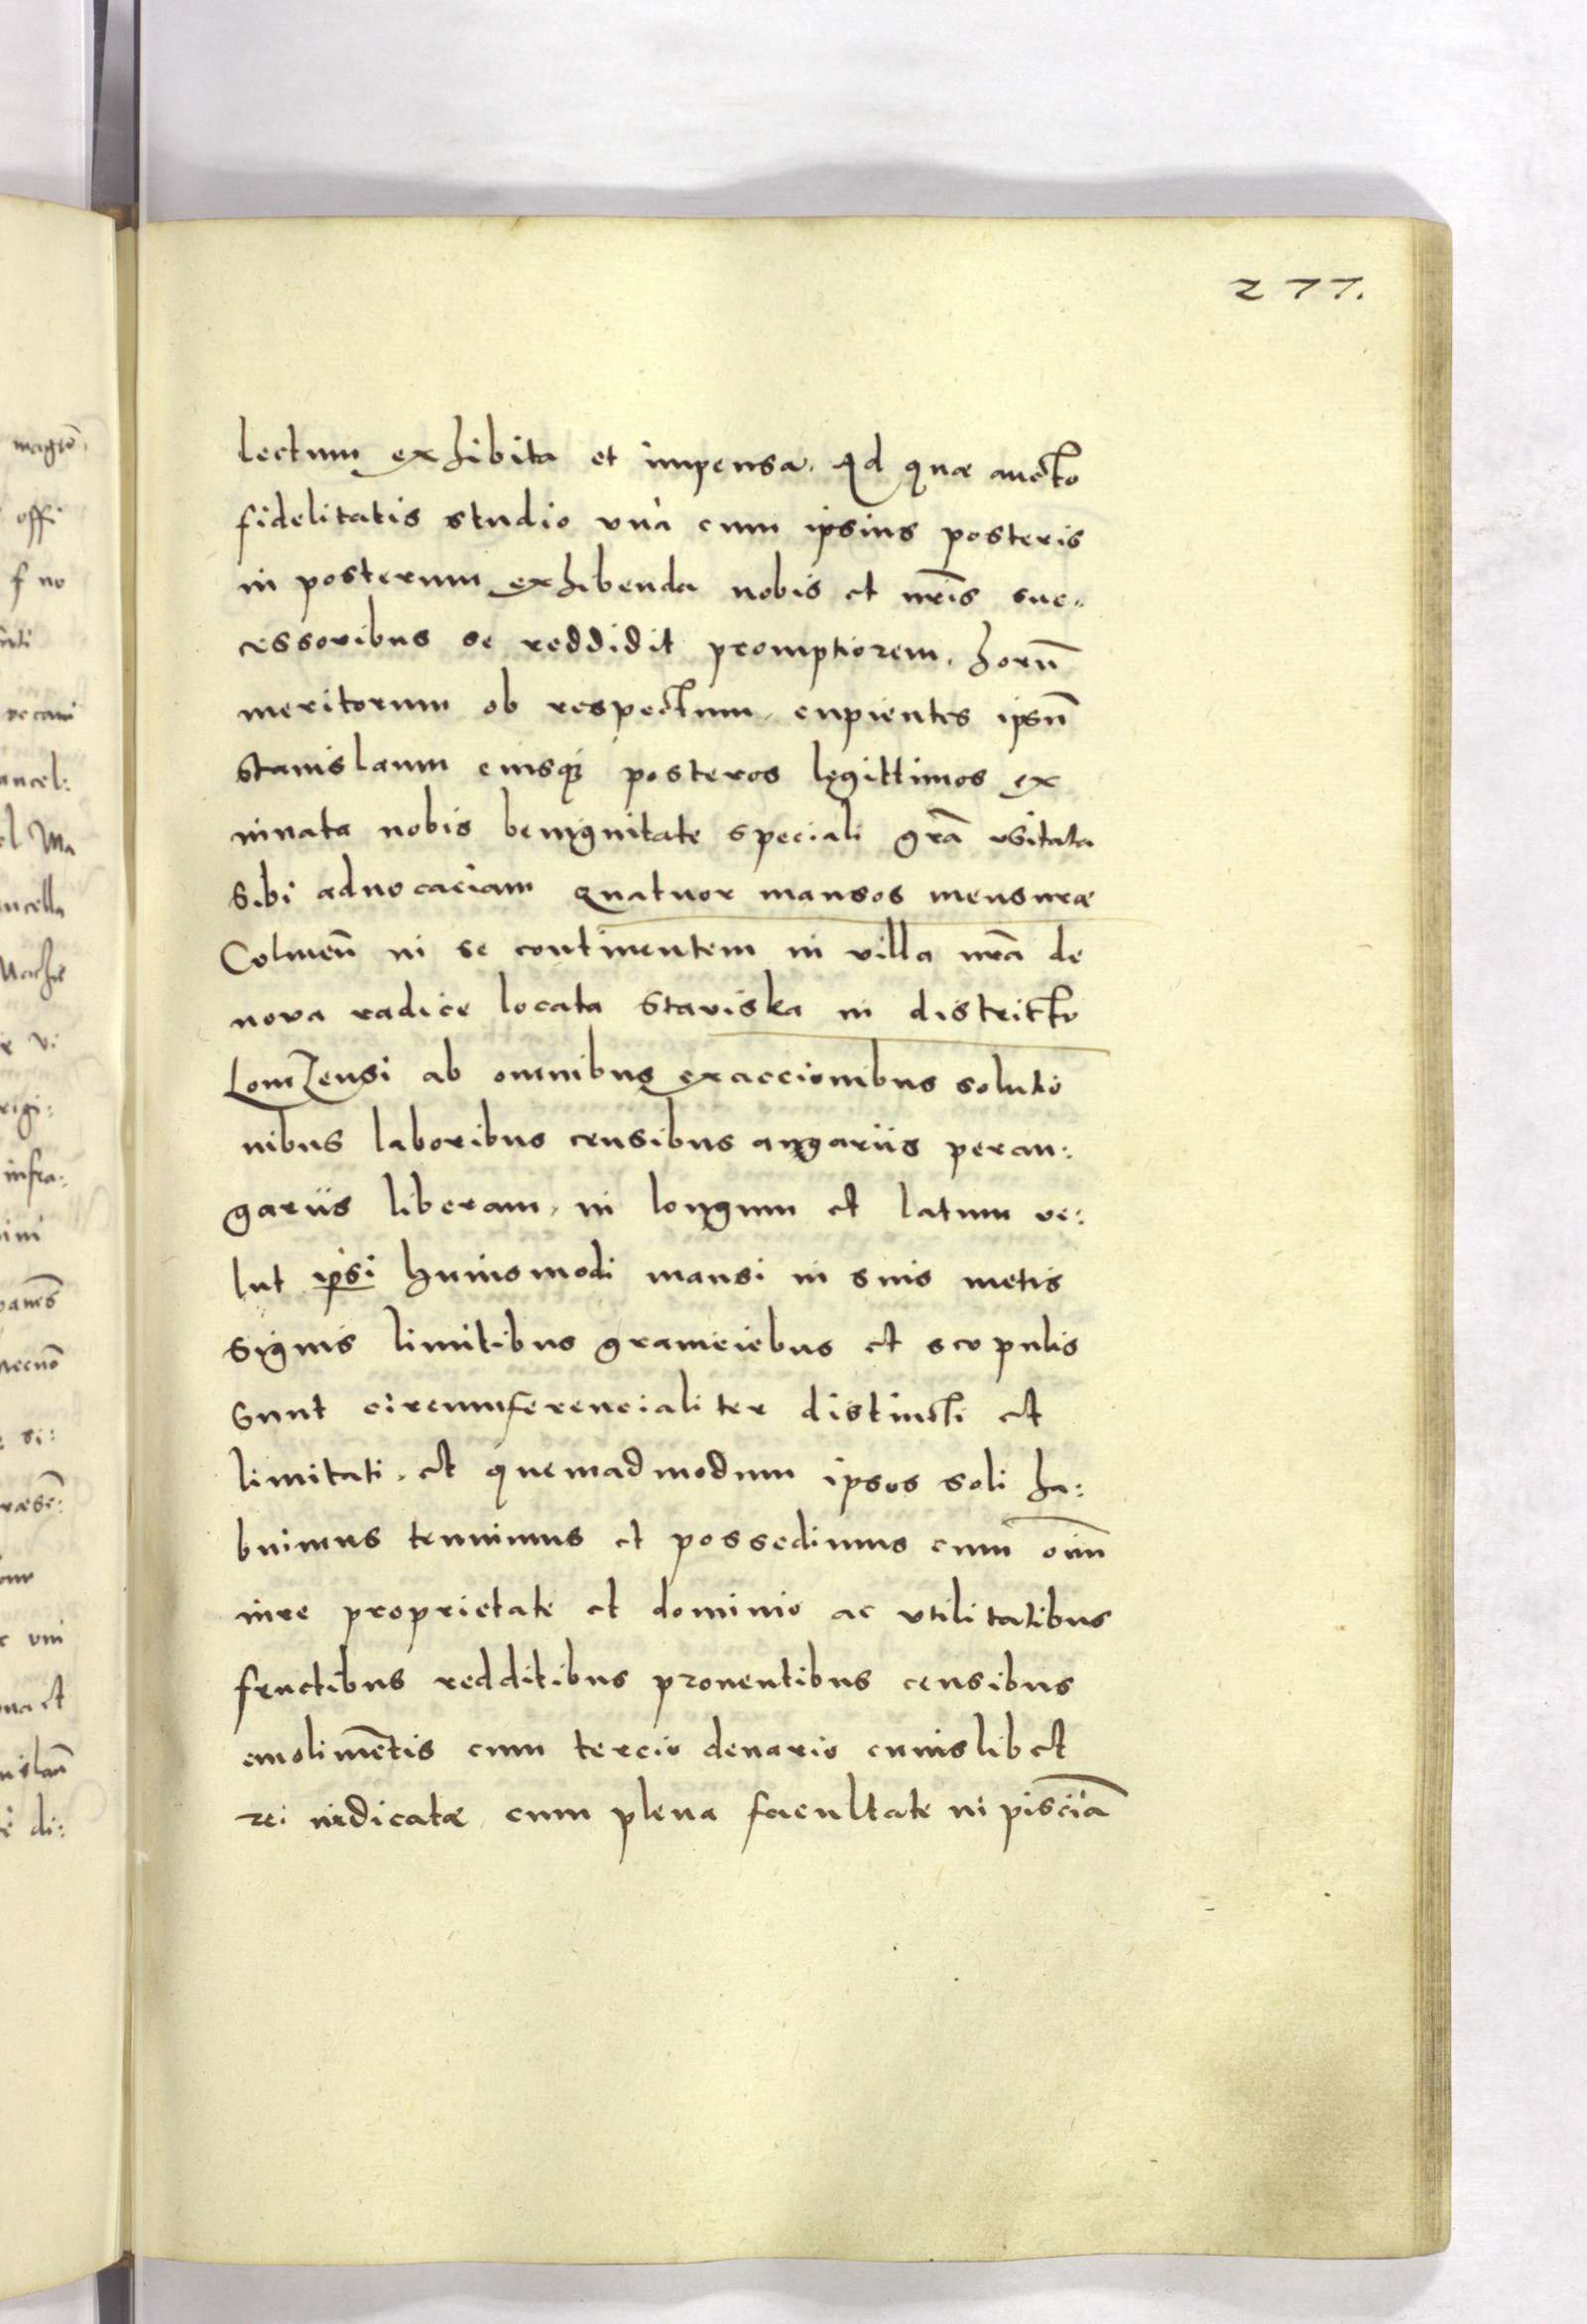 277.
lectum exhibita et impensa. Ad quæ aucto
fidelitatis studio vnà cum ipsius posteris
in posterum exhibenda nobis et nr̃is suc„
cessoribus se reddidit promptiorem. horũ
meritorum ob respectum, cupientes ipsũ
Stanislaum eiusq; posteros legittimos ex
innata nobis benignitate speciali gr̃a vsitata
Sibi aduocaciam quatuor mansos mensuræ
Colmeñ in se continentem in villa nr̃a de
nova radice locata Staviska in districto
Lomzensi ab omnibus exaccionibus solutio
nibus laboribus censibus angariis peran:
gariis liberam, in longum et latum ve:
lut ipsi huiusmodi mansi in suis metis
Signis limitibus graniciebus et scopulis
Sunt circumferencialiter distincti et
limitati. et quemadmodum ipsos soli ha:
buimus tenuimus et possedimus cum om̃i
iure proprietate et dominio ac vtilitatibus
fructibus redditibus prouentibus censibus
emolimẽtis cum tercio denario cuiuslibet
rei iudicatæ cum plena facultate in pisciã